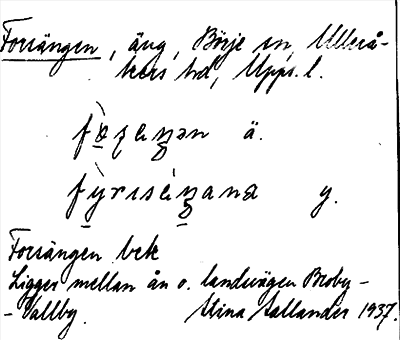 Forsängen, äng, Börje sn, Ullerå-
kers hd, Upps. l.
ä.
y.
Forsängen bek
Ligger mellan ån o. landsvägen Broby-
- Vallby. Stina Sallander 1937.